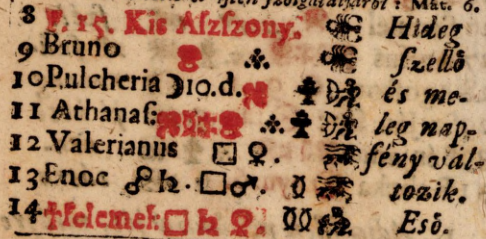 8 F. 15. Kis Aſzſzony. Hideg
9 Bruno ſzellõ
10 Pulcheria ☽ 10. d. és me-
11 Athanaſ: leg nap-
12 Valerianus □ ♀. fény vál-
13 Enoc ☍ ♄. □ ♂. tozik.
14 †felemel: □ ♄ ♀. Esõ.